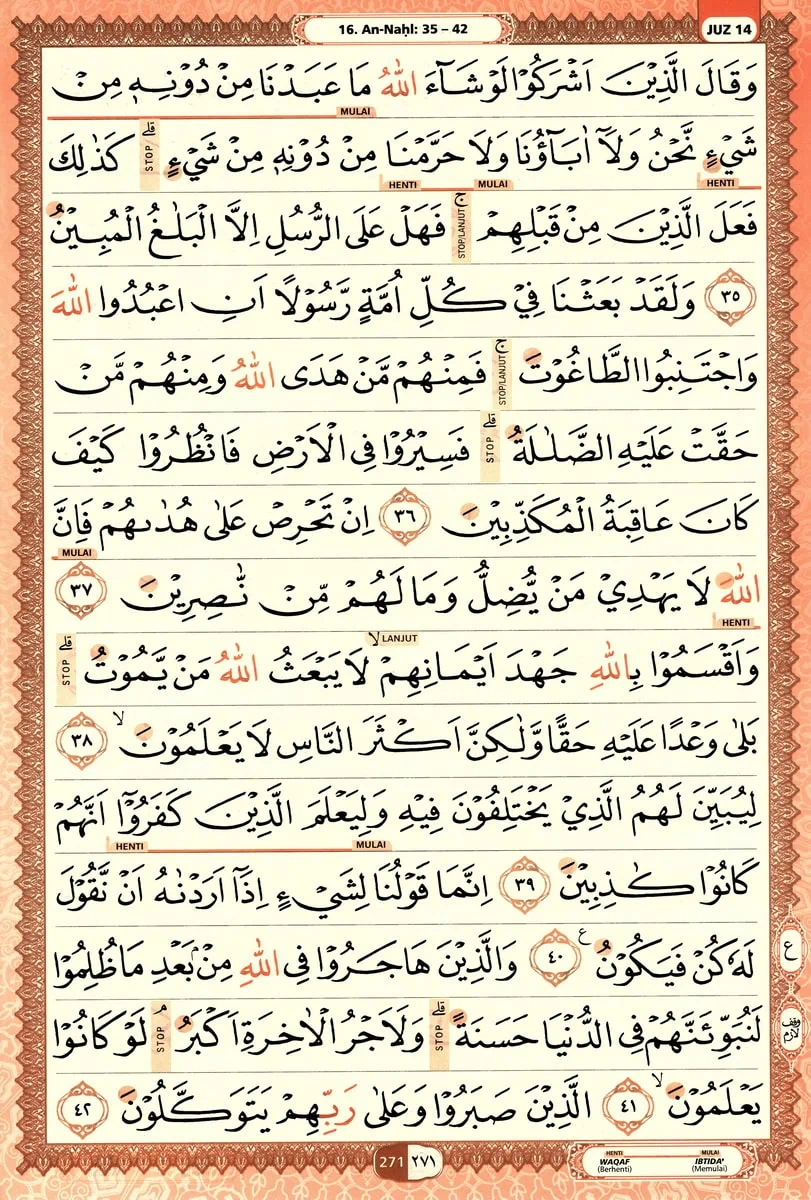 16. An-Naḥl: 35 – 42
JUZ 14
وَقَالَ الَّذِيْنَ اَشْرَكُوْا لَوْ شَاۤءَ اللّٰهُ مَا عَبَدْنَا مِنْ دُوْنِهٖ مِنْ
MULAI
شَيْءٍ نَّحْنُ وَلَآ اٰبَاۤؤُنَا وَلَا حَرَّمْنَا مِنْ دُوْنِهٖ مِنْ شَيْءٍ ۗ STOP كَذٰلِكَ
HENTI MULAI HENTI
فَعَلَ الَّذِيْنَ مِنْ قَبْلِهِمْ ۚ STOP/LANJUT فَهَلْ عَلَى الرُّسُلِ اِلَّا الْبَلٰغُ الْمُبِيْنُ
٣٥ وَلَقَدْ بَعَثْنَا فِيْ كُلِّ اُمَّةٍ رَّسُوْلًا اَنِ اعْبُدُوا اللّٰهَ
وَاجْتَنِبُوا الطَّاغُوْتَ ۚ STOP/LANJUT فَمِنْهُمْ مَّنْ هَدَى اللّٰهُ وَمِنْهُمْ مَّنْ
حَقَّتْ عَلَيْهِ الضَّلٰلَةُ ۗ STOP فَسِيْرُوْا فِى الْاَرْضِ فَانْظُرُوْا كَيْفَ
كَانَ عَاقِبَةُ الْمُكَذِّبِيْنَ ٣٦ اِنْ تَحْرِصْ عَلٰى هُدٰىهُمْ فَاِنَّ
MULAI
اللّٰهَ لَا يَهْدِيْ مَنْ يُّضِلُّ وَمَا لَهُمْ مِّنْ نّٰصِرِيْنَ ٣٧
HENTI
وَاَقْسَمُوْا بِاللّٰهِ جَهْدَ اَيْمَانِهِمْ ۙ LANJUT لَا يَبْعَثُ اللّٰهُ مَنْ يَّمُوْتُ ۗ STOP
بَلٰى وَعْدًا عَلَيْهِ حَقًّا وَّلٰكِنَّ اَكْثَرَ النَّاسِ لَا يَعْلَمُوْنَ ۙ ٣٨
لِيُبَيِّنَ لَهُمُ الَّذِيْ يَخْتَلِفُوْنَ فِيْهِ وَلِيَعْلَمَ الَّذِيْنَ كَفَرُوْٓا اَنَّهُمْ
MULAI HENTI
كَانُوْا كٰذِبِيْنَ ٣٩ اِنَّمَا قَوْلُنَا لِشَيْءٍ اِذَآ اَرَدْنٰهُ اَنْ نَّقُوْلَ
لَهٗ كُنْ فَيَكُوْنُ ࣖ ٤٠ وَالَّذِيْنَ هَاجَرُوْا فِى اللّٰهِ مِنْۢ بَعْدِ مَا ظُلِمُوْا
ع
لَنُبَوِّئَنَّهُمْ فِى الدُّنْيَا حَسَنَةً ۗ STOP وَلَاَجْرُ الْاٰخِرَةِ اَكْبَرُ ۘ STOP لَوْ كَانُوْا
وقف لازم
يَعْلَمُوْنَ ۙ ٤١ الَّذِيْنَ صَبَرُوْا وَعَلٰى رَبِّهِمْ يَتَوَكَّلُوْنَ ٤٢
271 ٢٧١
HENTI WAQAF (Berhenti)
MULAI IBTIDA' (Memulai)